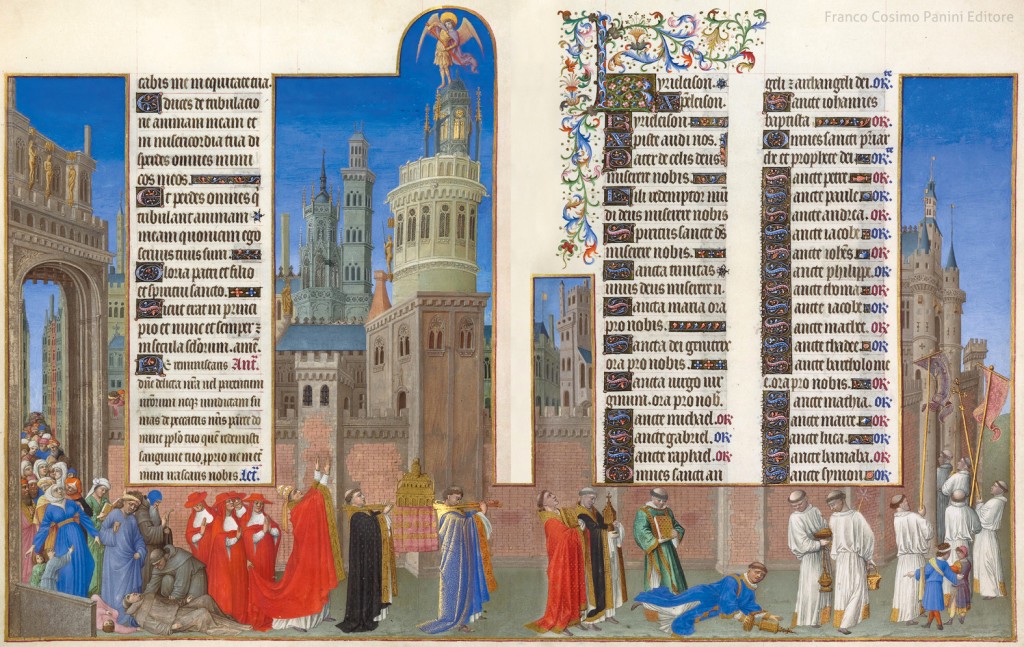 cabis me in equitate tua.
Educes de tribulatio
ne animam meam et
in misericordia tua di
sperdes omnes inimi
cos meos.
Et perdes omnes q̄
tribulant animam
meam quoniam ego
servus tuus sum.
Gloria patri et filio
et spiritui sancto.
Sicut erat in princi
pio et nunc et semper ⁊
in secula sc̄lorum. amē.
Ne reminiscaris Ant̄.
dn̄e delicta nr̄a vel parentum
nostrorum neq; vindictam su
mas de peccatis nr̄is parce do
mine pp̄lo tuo quē redemisti
sanguine tuo proprio ne in et̄
num irascaris nobis.
Franco Cosimo Panini Editore
Kyrieleison.
Xp̄eleison.
Kyrieleison.
Xpiste audi nos.
Pater de celis deus
miserere nobis.
Fili redemptor mū
di deus miserere nobis
Spiritus sancte ds̄
miserere nobis.
Sancta trinitas
unus deus miserere n̄.
Sancta maria ora
pro nobis.
Sancta dei genitrix
ora pro nobis.
Sancta virgo vir
ginum. ora pro nob̄.
Sancte michael. or̄.
Sancte gabriel. or̄.
Sancte raphael. or̄.
Omnes sancti an
geli ⁊ archangeli dei. or̄te
Sancte iohannes
baptista or̄.
Omnes sancti patriar
che et prophete dei. or̄te
Sancte petre or̄.
Sancte paule or̄.
Sancte andrea. or̄.
Sancte iacobe or̄.
Sancte ioh̄es or̄.
Sancte philippe. or̄.
Sancte thoma or̄.
Sancte iacobe or̄.
Sancte mathee. or̄.
Sancte thadee or̄.
Sancte bartholome
e. ora pro nobis.
Sancte mathia. or̄.
Sancte marce or̄.
Sancte luca or̄.
Sancte barnaba. or̄.
Sancte symon or̄.